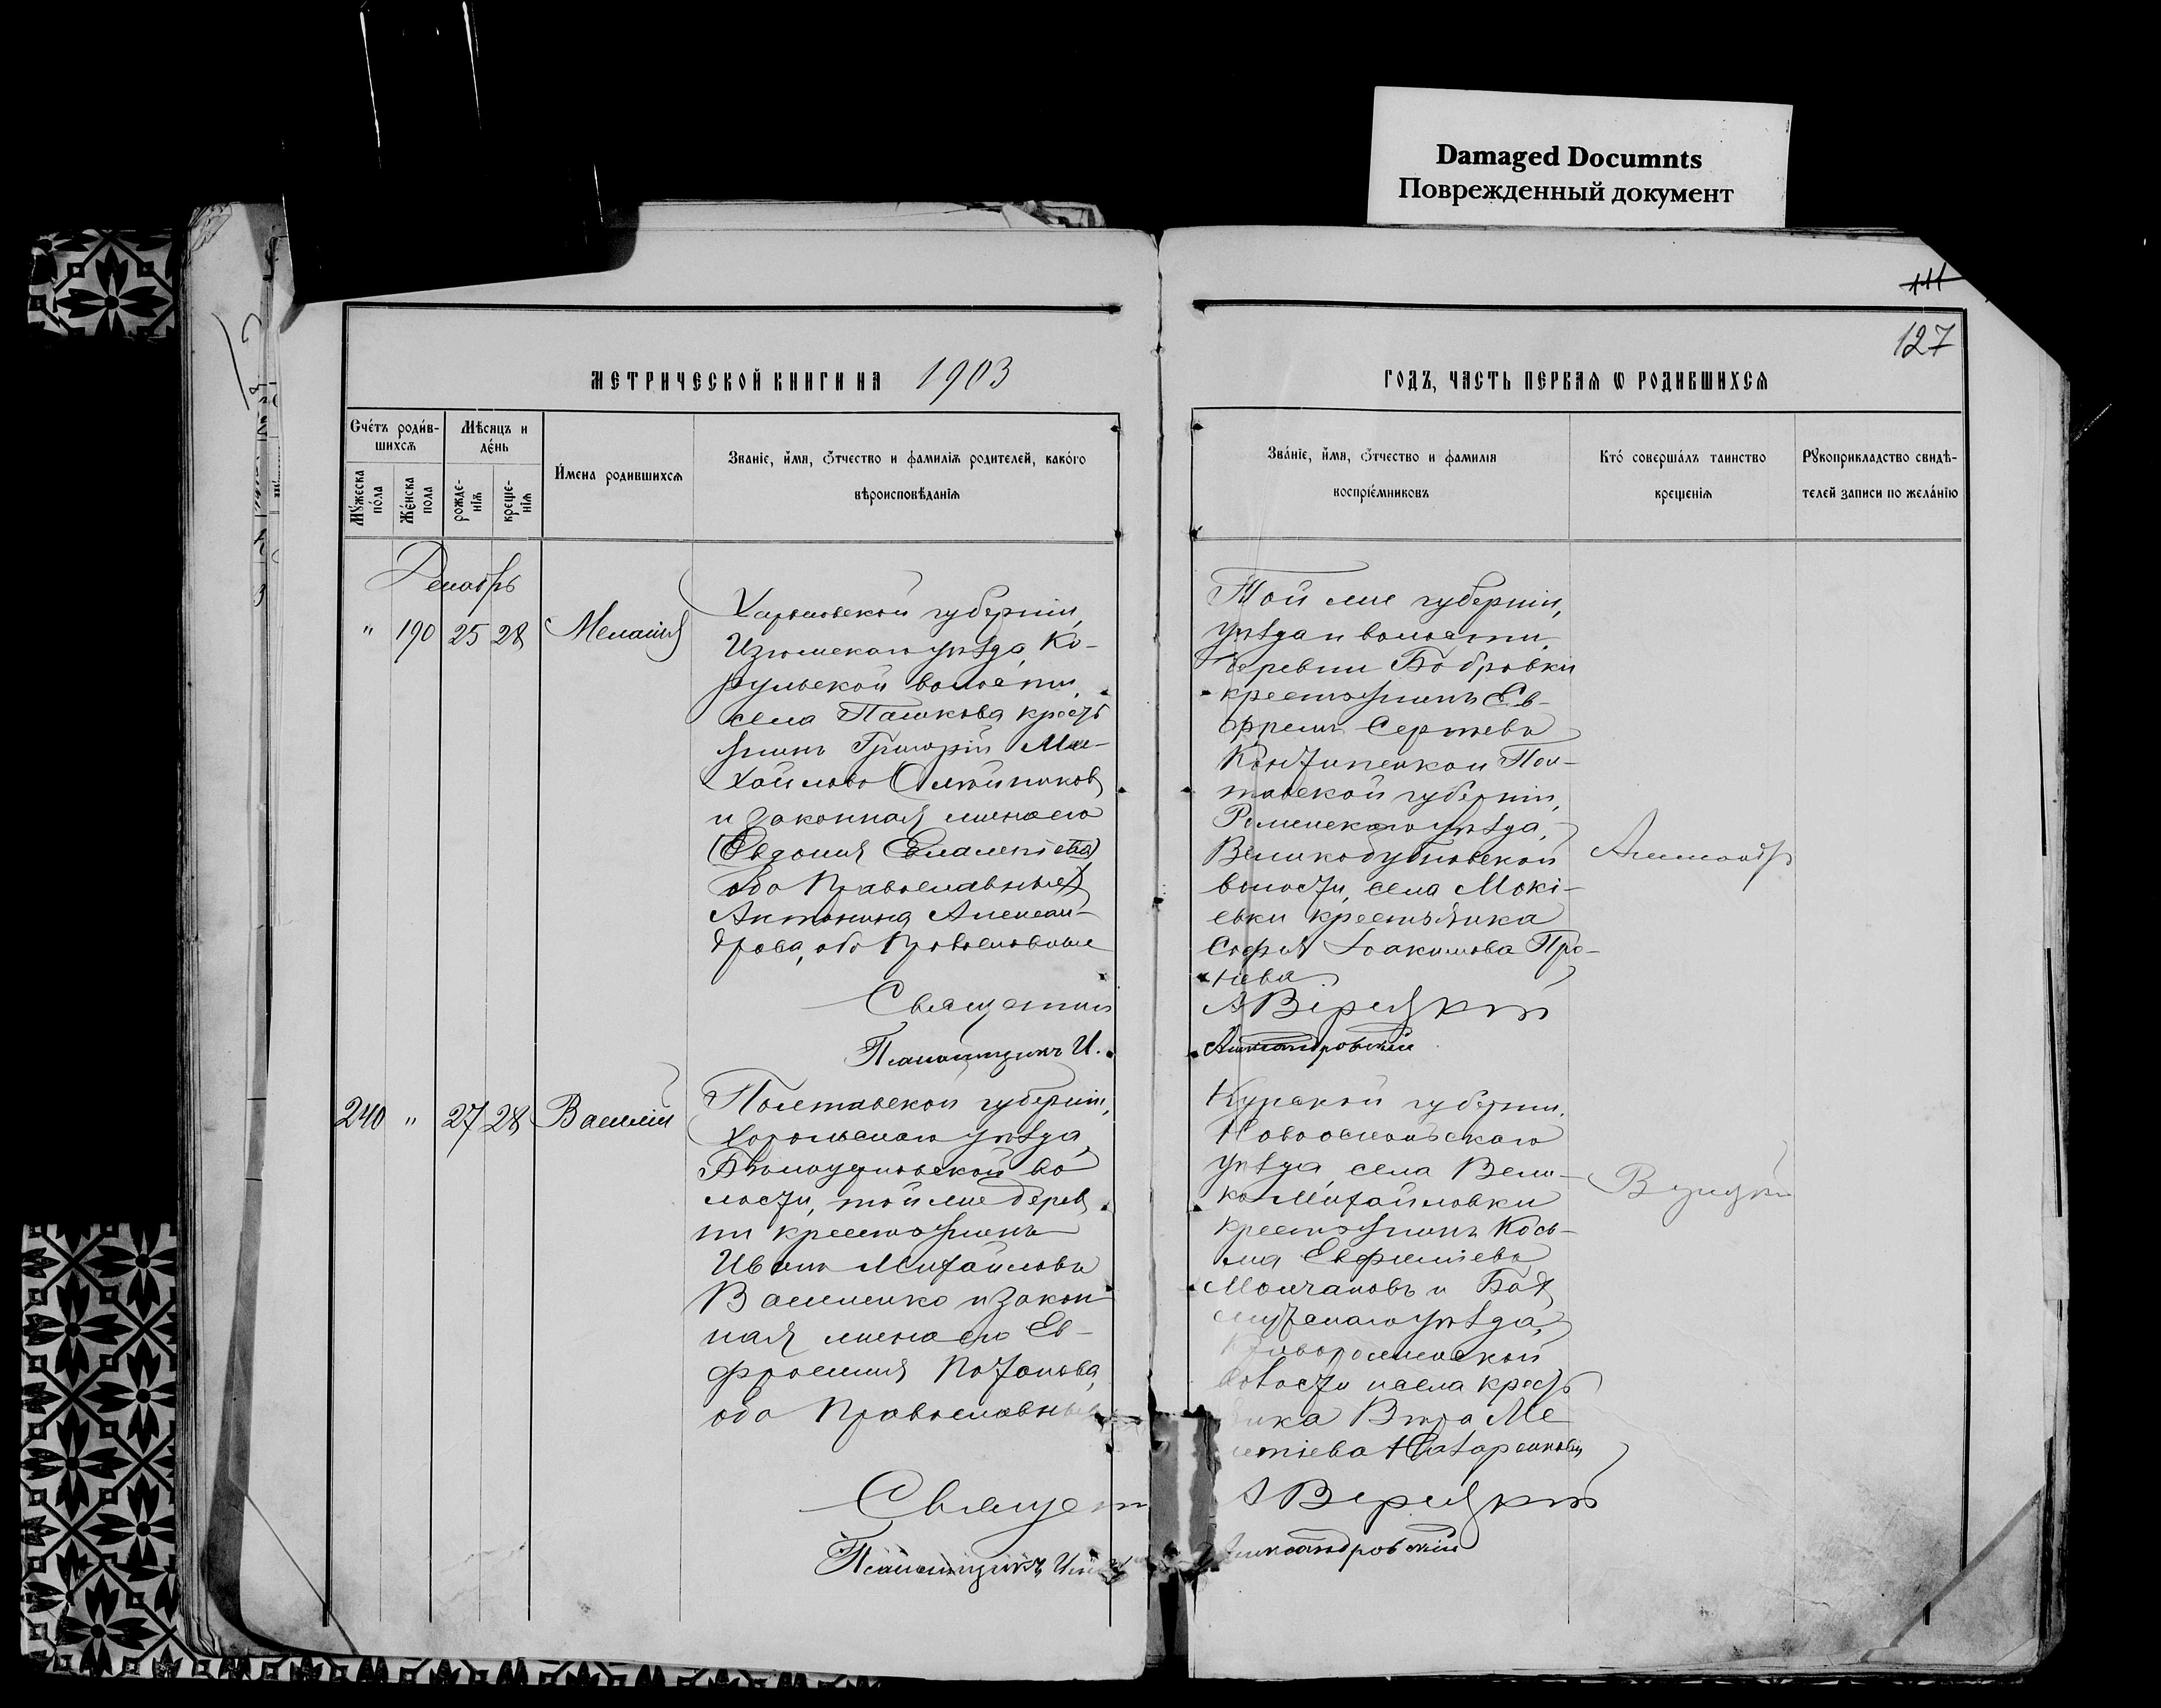 Damaged Documnts
Поврежденный документ
111
127
МЕТРИЧЕСКОЙ КНИГИ НА 1903
ГОДЪ, ЧАСТЬ ПЕРВАѦ Ѡ РОДИВШИХСѦ
Счéтъ роди́в-
шихсѧ
Мѣсяцъ и
дéнь
Мꙋ́жеска
по́ла
Же́нска
пола
рожде-
нїѧ
креще-
нїѧ
И́мена родившихсѧ
Званїе, и́мя, ѻ҆тчество и фамилїѧ родителей, како́го
вѣроисповѣ́данїѧ
Зва́нїе, и́мя, ѻ҆тчество и фамилїѧ
воспрїе́мниковъ
Кто́ соверша́лъ таинство
крещенїѧ
Рꙋкоприкладство свидѣ-
телей записи по жела́нїю
Декабрь
" 190 25 28 Меланія
Харьковской губерніи,
Изюмскаго уѣзда, Ко-
рульской волости,
села Пашкова кресть
янинъ Григорій Ми-
хайловъ Олейниковъ
и законная жена его
Евдокія
оба Православные
Антонина Алексан-
дрова, оба Православные
Священникъ
Псаломщикъ И.
Той же губерніи,
уѣзда и волости,
деревни Бобровки
крестьянинъ Ев-
фремъ Сергѣевъ
Пол-
тавской губерніи,
Роменскаго уѣзда,
Великобубновской
волости, села Мокі-
евки крестьянка
Софія Іоакимова Про-
нева
А Верицкій
Александровскій
Александр
240 " 27 28 Василій
Полтавской губерніи,
Хорольскаго уѣзда,
во
лости, той же дерев
ни крестьянинъ
Иванъ Михайловъ
Василенко и закон
ная жена его Ев-
фросинія Потапова,
оба Православные
Священ
Псаломщикъ
Курской губерніи,
Новооскольскаго
уѣзда, села Вели-
ко Михайловки
крестьянинъ Кось-
ма Евфиміевъ
Молчановъ и Бах
мутскаго уѣзда,
волости и села кресть
янка Вѣра Ме
летіева
А Верицкій
Александровскій
Верицкій